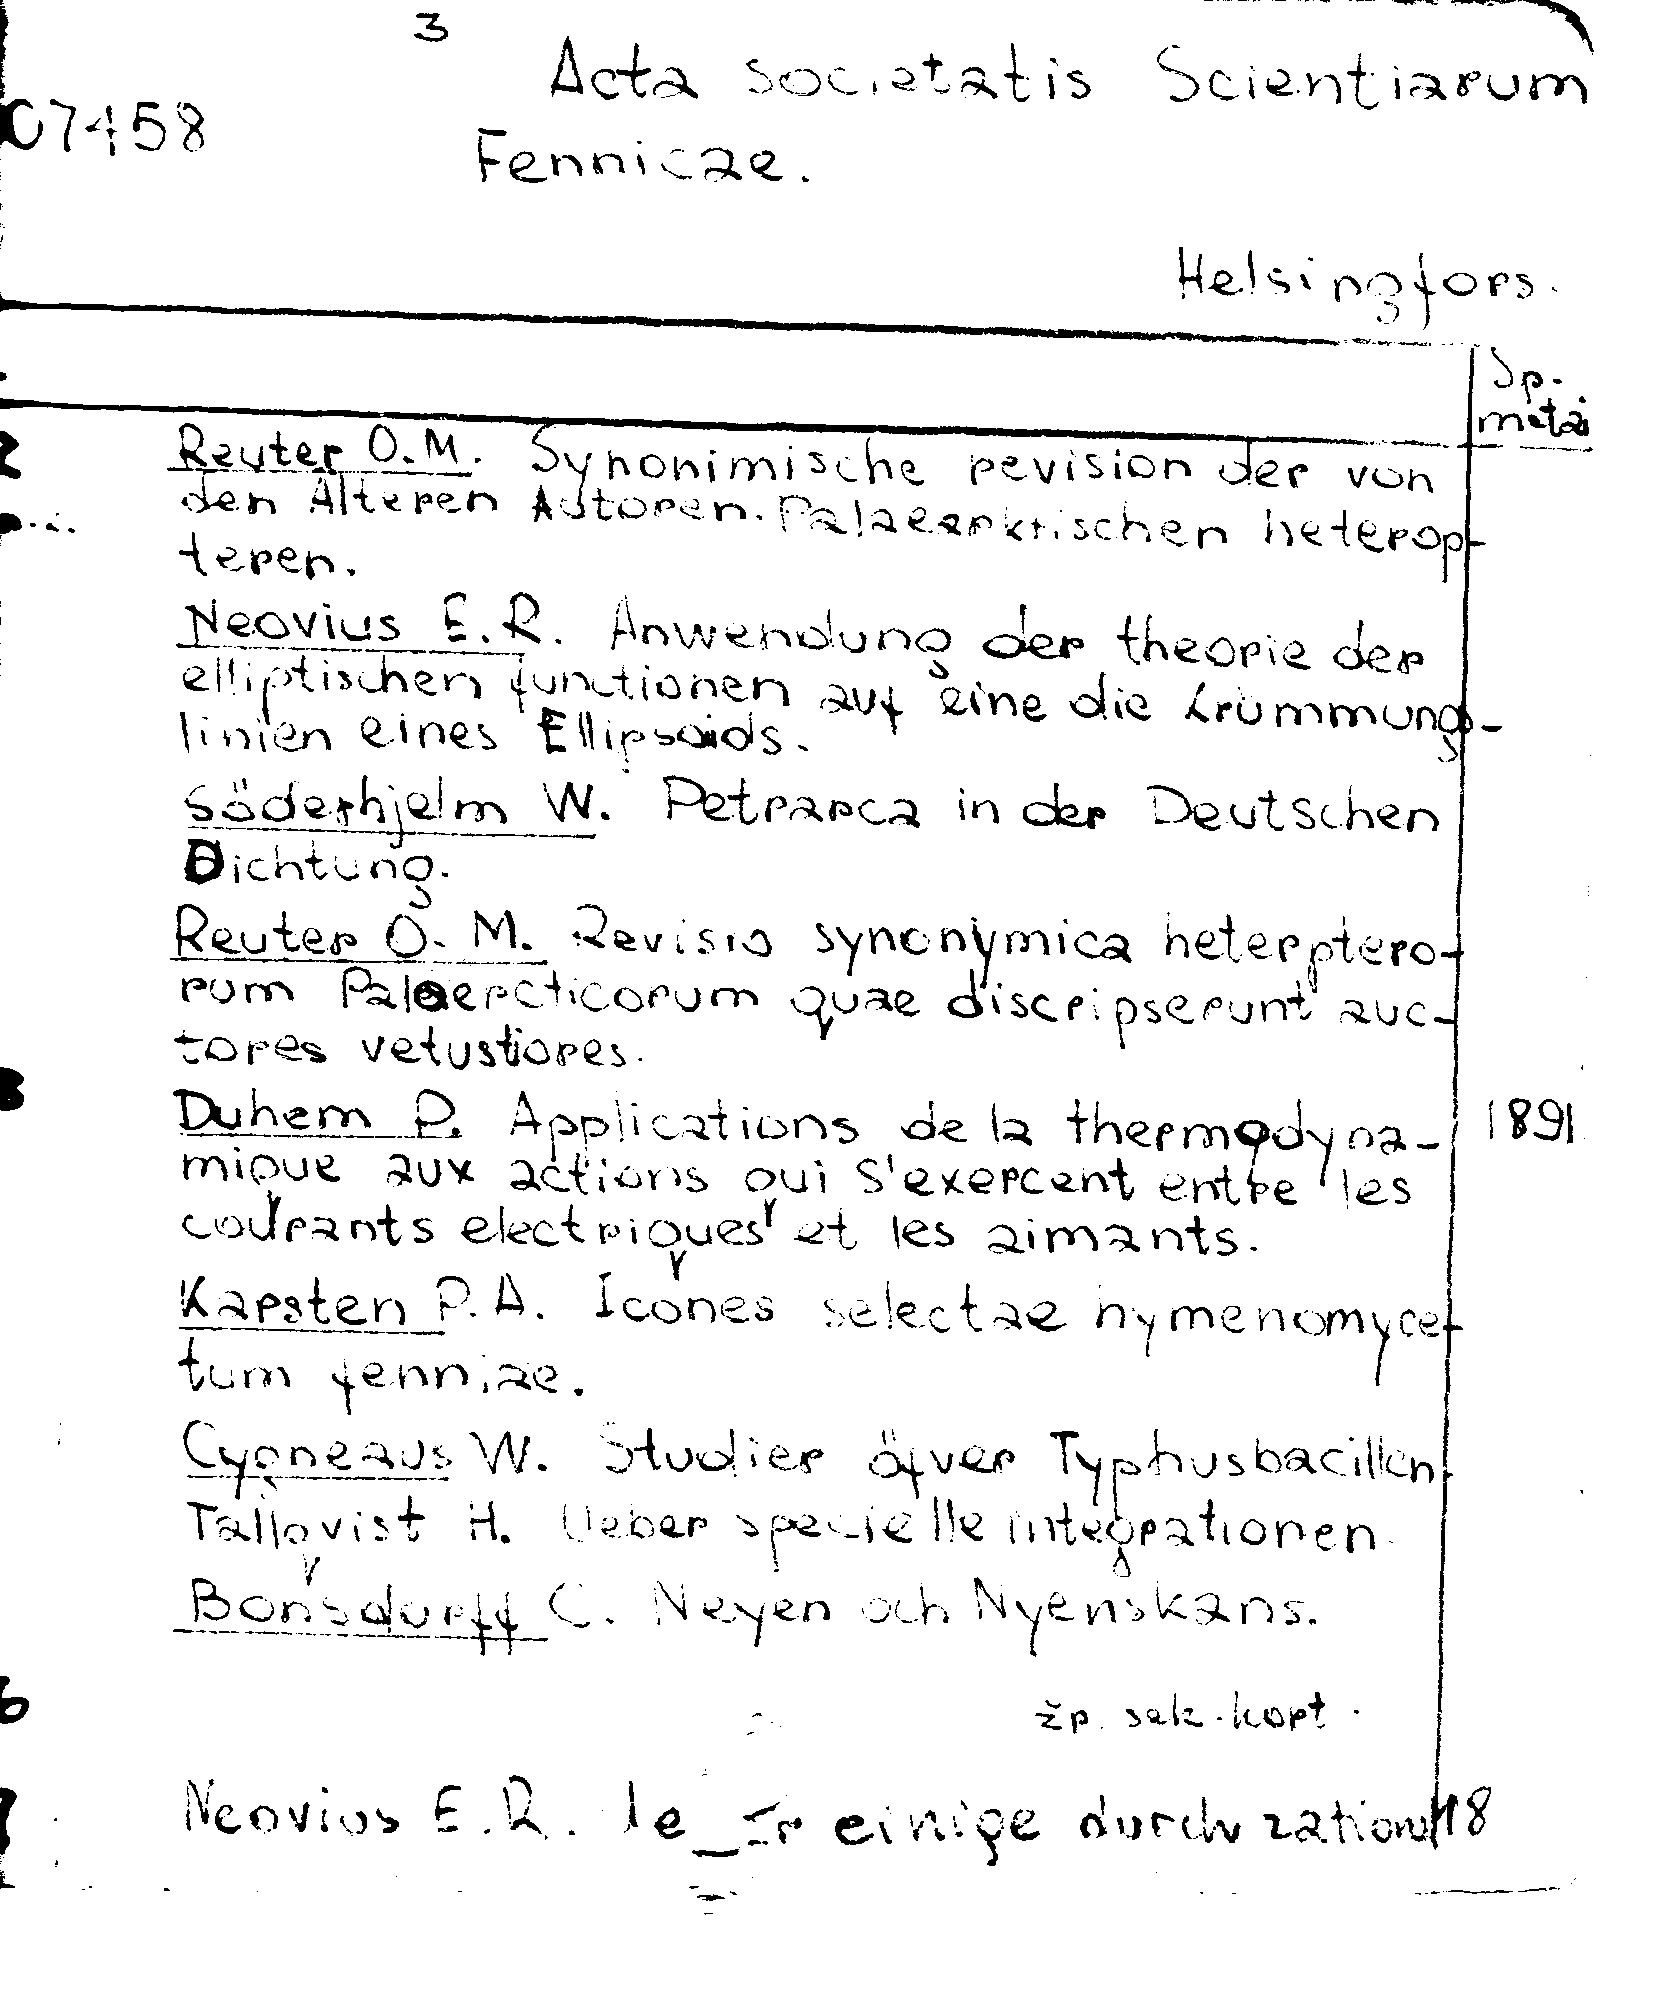 3
Acta Societatis Scientiarum
07458
Fennicae.
Helsingfors.
Sp.
metai
Reuter O.M. Synonimische revision der von
den Älteren Autoren. Palaearktischen heterop-
teren.
Neovius E.R. Anwendung der theorie der
elliptischen functionen auf eine die krümmungs-
linien eines Ellipsoids.
Söderhjelm W. Petrarca in der Deutschen
Dichtung.
Reuter O. M. Revisio synonymica heterptero-
rum Palaercticorum quae discripserunt auc-
tores vetustiores.
Duhem P. Applications de la thermodyna- 1891
mique aux actions qui s'exercent entre les
courants electriques et les aimants.
Karsten P.A. Icones selectae hymenomyce-
tum fenniae.
Cygneaus W. Studier öfver Typhusbacillen.
Tallqvist H. Ueber specielle integrationen.
Bonsdorff C. Neyen och Nyenskans.
6
žp. sek. kort.
Neovius E.R. einige durch 18